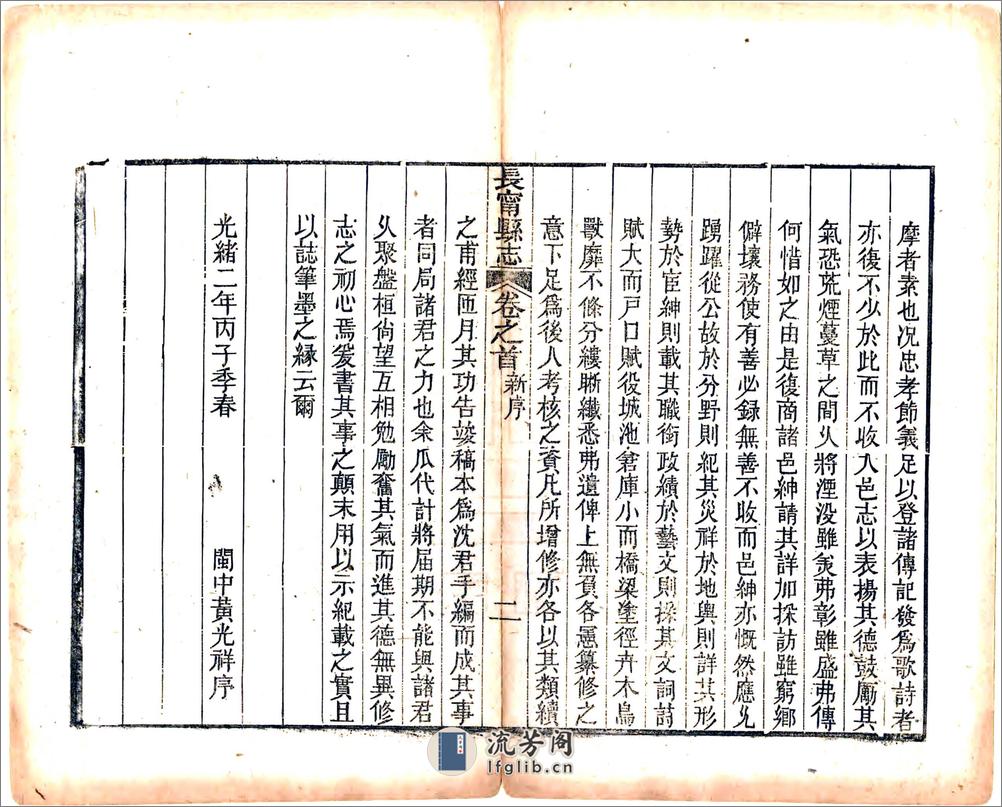 摩者素也况忠孝節義足以登諸傳記發爲歌詩者
亦復不少於此而不收入邑志以表揚其德鼓勵其
氣恐荒煙蔓草之間乆將湮没雖美弗彰雖盛弗傳
何惜如之由是復商諸邑紳請其詳加採訪雖窮鄉
僻壤務使有善必録無善不收而邑紳亦慨然應允
踴躍從公故於分野則紀其災祥於地輿則詳其形
勢於宦紳則載其職銜政績於藝文則採其文詞詩
賦大而戸口賦役城池倉庫小而橋梁塗徑卉木鳥
獸靡不條分縷晰纖悉弗遺俾上無負各憲纂修之
意下足爲後人考核之資凡所增修亦各以其類續
長甯縣志 卷之首 新序 二
之甫經匝月其功告竣稿本爲沈君手編而成其事
者同局諸君之力也余瓜代計將届期不能與諸君
乆聚盤桓尙望互相勉勵奮其氣而進其德無異修
志之初心焉爰書其事之顛末用以示紀載之實且
以誌筆墨之緣云爾
光緒二年丙子季春 閩中黃光祥序
流芳阁
lfglib.cn